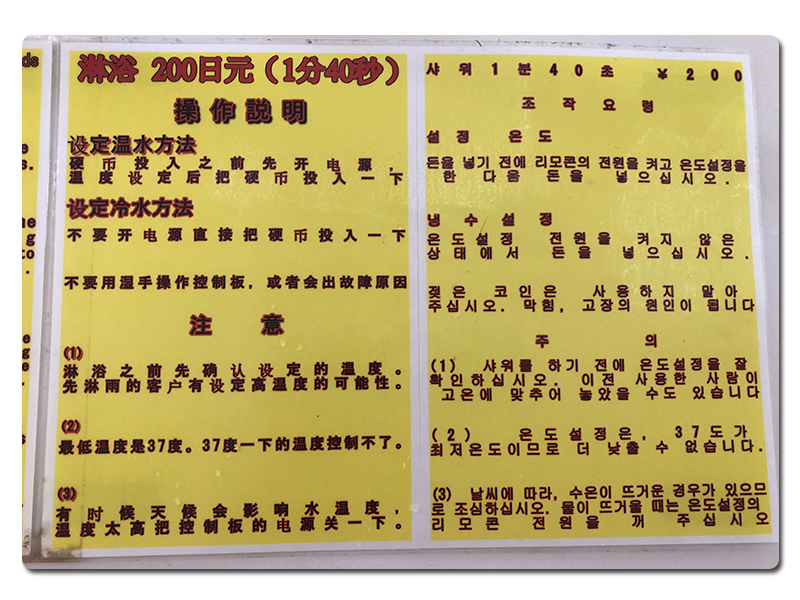 淋浴 200日元（1分40秒）
操作説明
设定温水方法
硬币投入之前先开电源，
温度设定后把硬币投入一下
设定冷水方法
不要开电源直接把硬币投入一下
不要用湿手操作控制板，或者会出故障原因
注 意
(1)
淋浴之前先确认设定的温度。
先淋雨的客户有设定高温度的可能性。
(2)
最低温度是37度。37度一下的温度控制不了。
(3)
有时候天候会影响水温度，
温度太高把控制板的电源关一下。
샤워1분40초 ¥200
조작요령
설정 온도
돈을 넣기 전에 리모콘의 전원을 켜고 온도설정을
한 다음 돈을 넣으십시오.
냉수설정
온도설정 전원을 켜지 않은
상태에서 돈을 넣으십시오.
젖은 코인은 사용하지 말아
주십시오. 막힘, 고장의 원인이 됩니다
주 의
(1) 샤워를 하기 전에 온도설정을 잘
확인하십시오. 이전 사용한 사람이
고온에 맞추어 놓았을 수도 있습니다
(2) 온도설정은, 37도가
최저온도이므로 더 낮출 수 없습니다.
(3) 날씨에 따라, 수온이 뜨거운 경우가 있으므
로 조심하십시오. 물이 뜨거울 때는 온도설정의
리모콘 전원을 꺼 주십시오